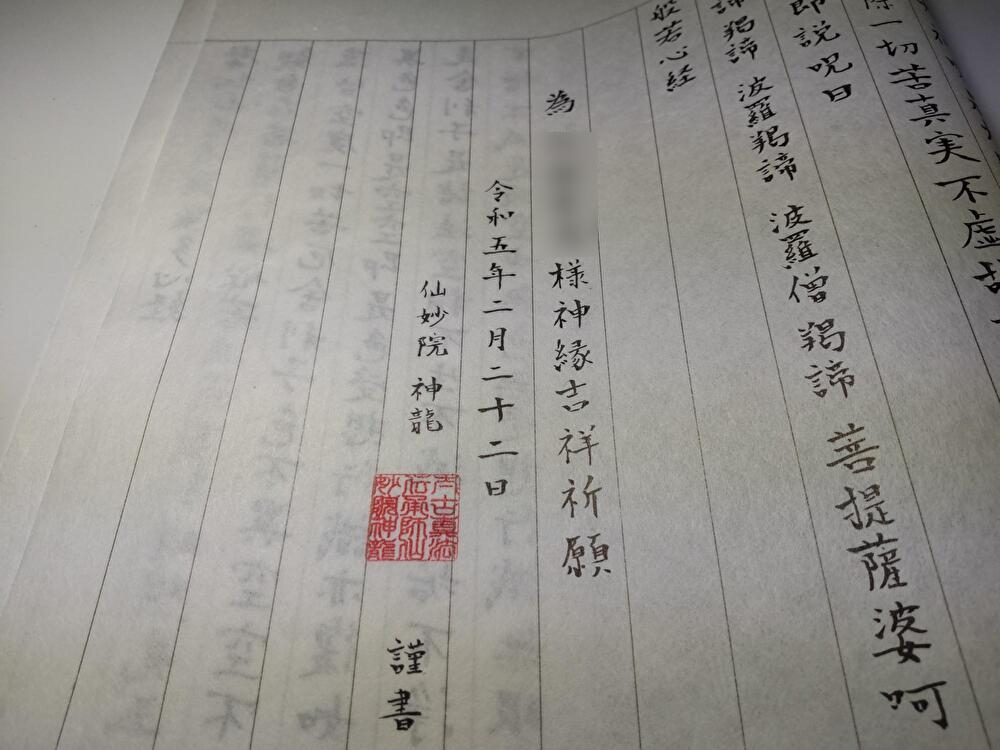 除一切苦真実不虚故
即説呪曰
諦羯諦 波羅羯諦 波羅僧羯諦 菩提薩婆呵
般若心経
為 様神縁吉祥祈願
令和五年二月二十二日
仙妙院 神龍 謹書
太古真法
伝承師仙
妙院神龍